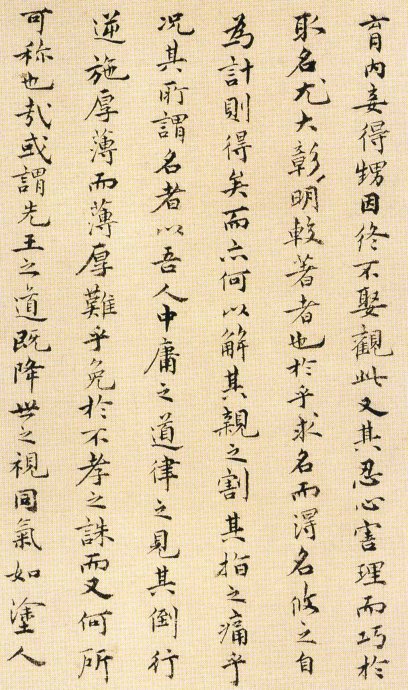 育内妾得甥因终不娶觀此又其忍心害理而巧於
取名尤大彰明較著者也於乎求名而得名攸之自
為計則得矣而亦何以解其親之割其指之痛乎
况其所謂名者以吾人中庸之道律之見其倒行
逆施厚薄而薄厚難乎免於不孝之誅而又何所
可称也哉或謂先王之道既降世之視同氣如塗人